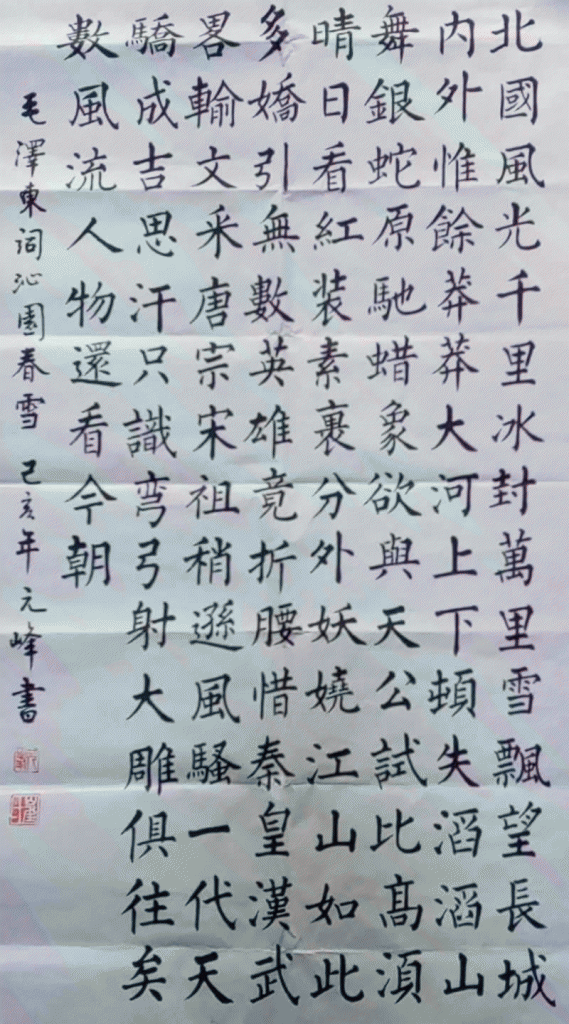 北國風光千里冰封萬里雪飄望長城
内外惟餘莽莽大河上下頓失滔滔山
舞銀蛇原馳蜡象欲與天公試比髙湏
晴日看紅装素裹分外妖嬈江山如此
多嬌引無數英雄竟折腰惜秦皇漢武
畧輸文采唐宗宋祖稍遜風騷一代天
驕成吉思汗只識弯弓射大雕俱往矣
數風流人物還看今朝
毛澤東詞沁園春雪 己亥年元峰書